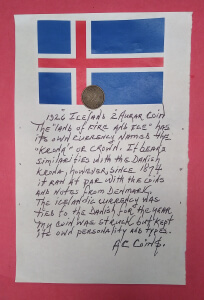 1926 Iceland 2 Aurar Coin
The "land of Fire and Ice" has
its own currency named the
"Krona" or Crown. It bears
similarities with the Danish
Krona, however, since 1874
it ran at par with the coins
and notes from Denmark.
The Icelandic currency was
tied to the Danish for the year
my coin was struck but kept
its own personality and types.
A.C. Coins.